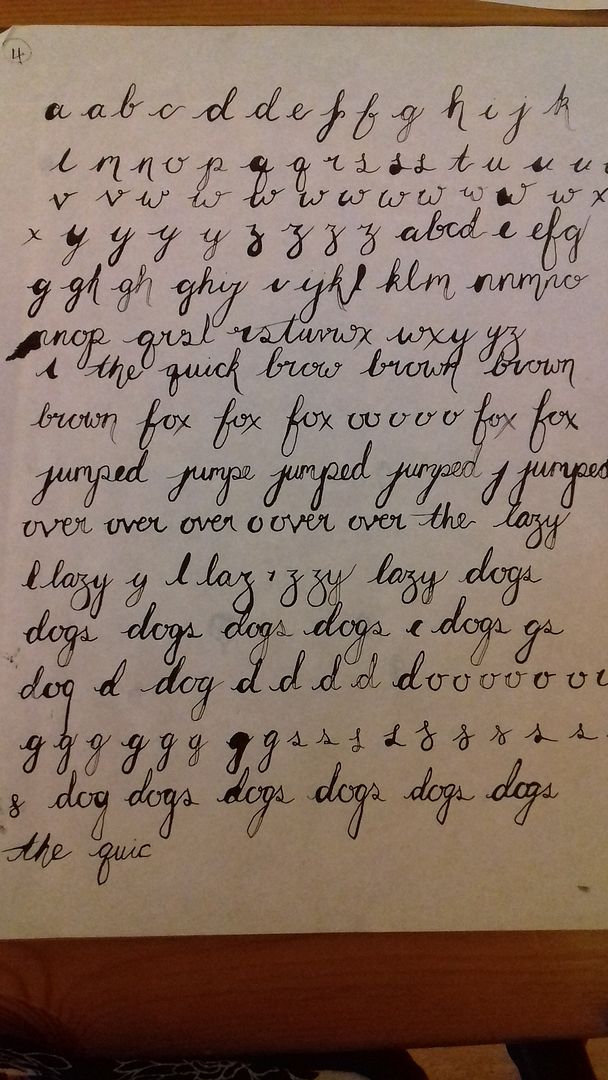 4
a a b c d d e f f g h i j k
l m n o p q q r s s s t u u u
v v w w w w w w w w w w x
x y y y y z z z z abcd e efg
g gh gh ghij i ijkl klm nnmno
nnop qrst rstuvwx wxy yz
t the quick brow brown brown
brown fox fox fox o o o o o fox fox
jumped jumpe jumped jumped j jumped
over over over o over over the lazy
l lazy y l laz z zy lazy dogs
dogs dogs dogs dogs e dogs gs
dog d dog d d d d d o o o o o o
g g g g g g g g s s s s s s s s s
s dog dogs dogs dogs dogs dogs
the quic